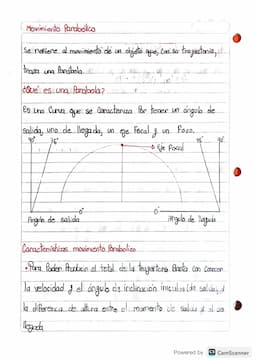 Movimiento Parabolico
Se refiere al movimiento de un objeto que, con su trayectoria,
traza una Parabola.
¿Qué es una Parabola?
Es una Curva que se Caracteriza Por tener un ángulo de
salida, uno de llegada, un eje Focal y un Foco.
90° 75° 75° 90°
Eje Focal
0° 0°
Angulo de Salida Angulo de llegada
Caracteristicas movimiento Parabolico
• Para Poder Producir el total de la trayectoria Basta con conocer
la velocidad y el ángulo de inclinación iniciales (de salida) y
la diferencia de altura entre el momento de salida y el de
llegada
Powered by CS CamScanner